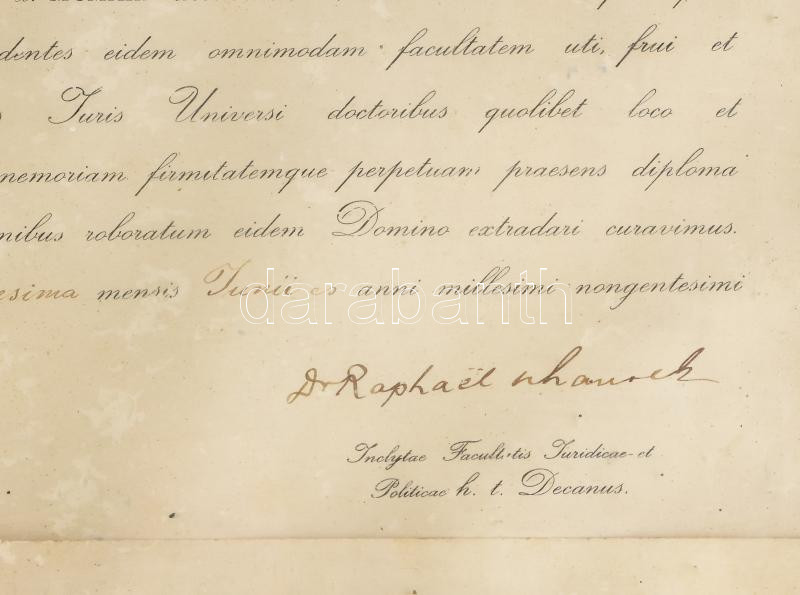 dentes eidem omnimodam facultatem uti, frui et
Juris Universi doctoribus quolibet loco et
memoriam firmitatemque perpetuam praesens diploma
nibus roboratum eidem Domino extradari curavimus.
esima mensis Junii anni millesimi nongentesimi
darabanth
Dr Raphaël
Inclytae Facultatis Juridicae et
Politicae h. t. Decanus.